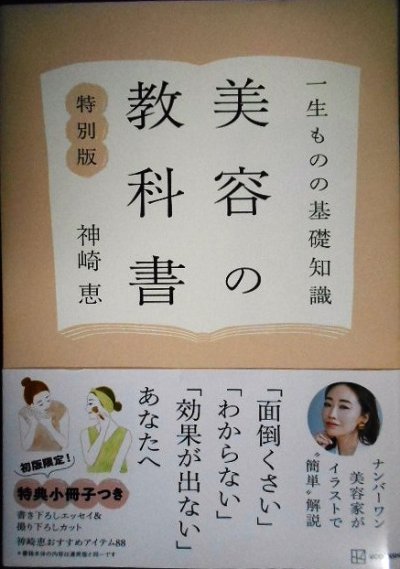 一生ものの基礎知識
美容の
教科書
特別版
神崎恵
「面倒くさい」
「わからない」
「効果が出ない」
あなたへ
ナンバーワン
美容家が
イラストで
“簡単”解説
初版限定!
特典小冊子つき
書き下ろしエッセイ&
撮り下ろしカット
神崎恵おすすめアイテム88
※書籍本体の内容は通常版と同一です